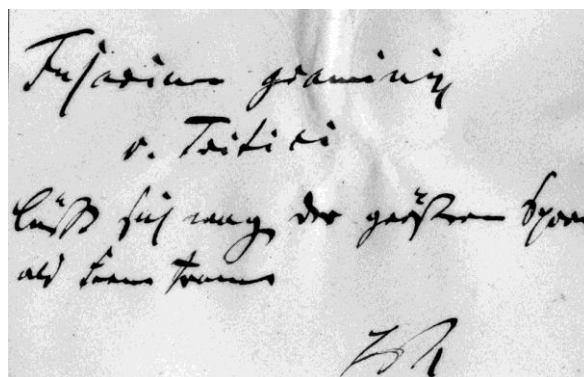 Fusarium graminis
v. Tritici
läßt sich wegen der größeren Sporen
als